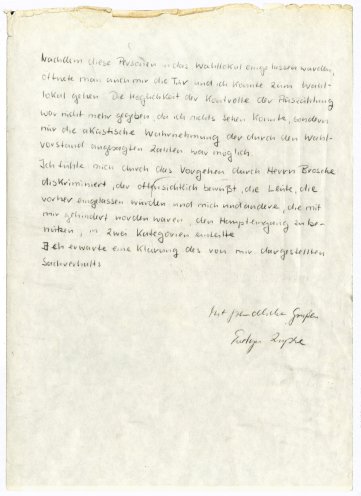 Nachdem diese Personen in das Wahllokal eingelassen wurden,
öffnete man auch mir die Tür und ich konnte zum Wahl-
lokal gehen. Die Möglichkeit der Kontrolle der Auszählung
war nicht mehr gegeben da ich nichts sehen konnte, sondern
mir die akustische Wahrnehmung der durch den Wahl-
vorstand angesagten Zahlen war möglich.
Ich fühlte mich durch das Vorgehen durch Herrn Brosche
diskriminiert, der offensichtlich bewußt, die Leute, die
vorher eingelassen wurden und mich und andere, die mit
mir gehindert worden waren, den Haupteingang zu be-
nutzen, in zwei Kategorien einteilte
Ich erwarte eine Klärung des von mir dargestellten
Sachverhalts
Mit freundlichen Grüßen